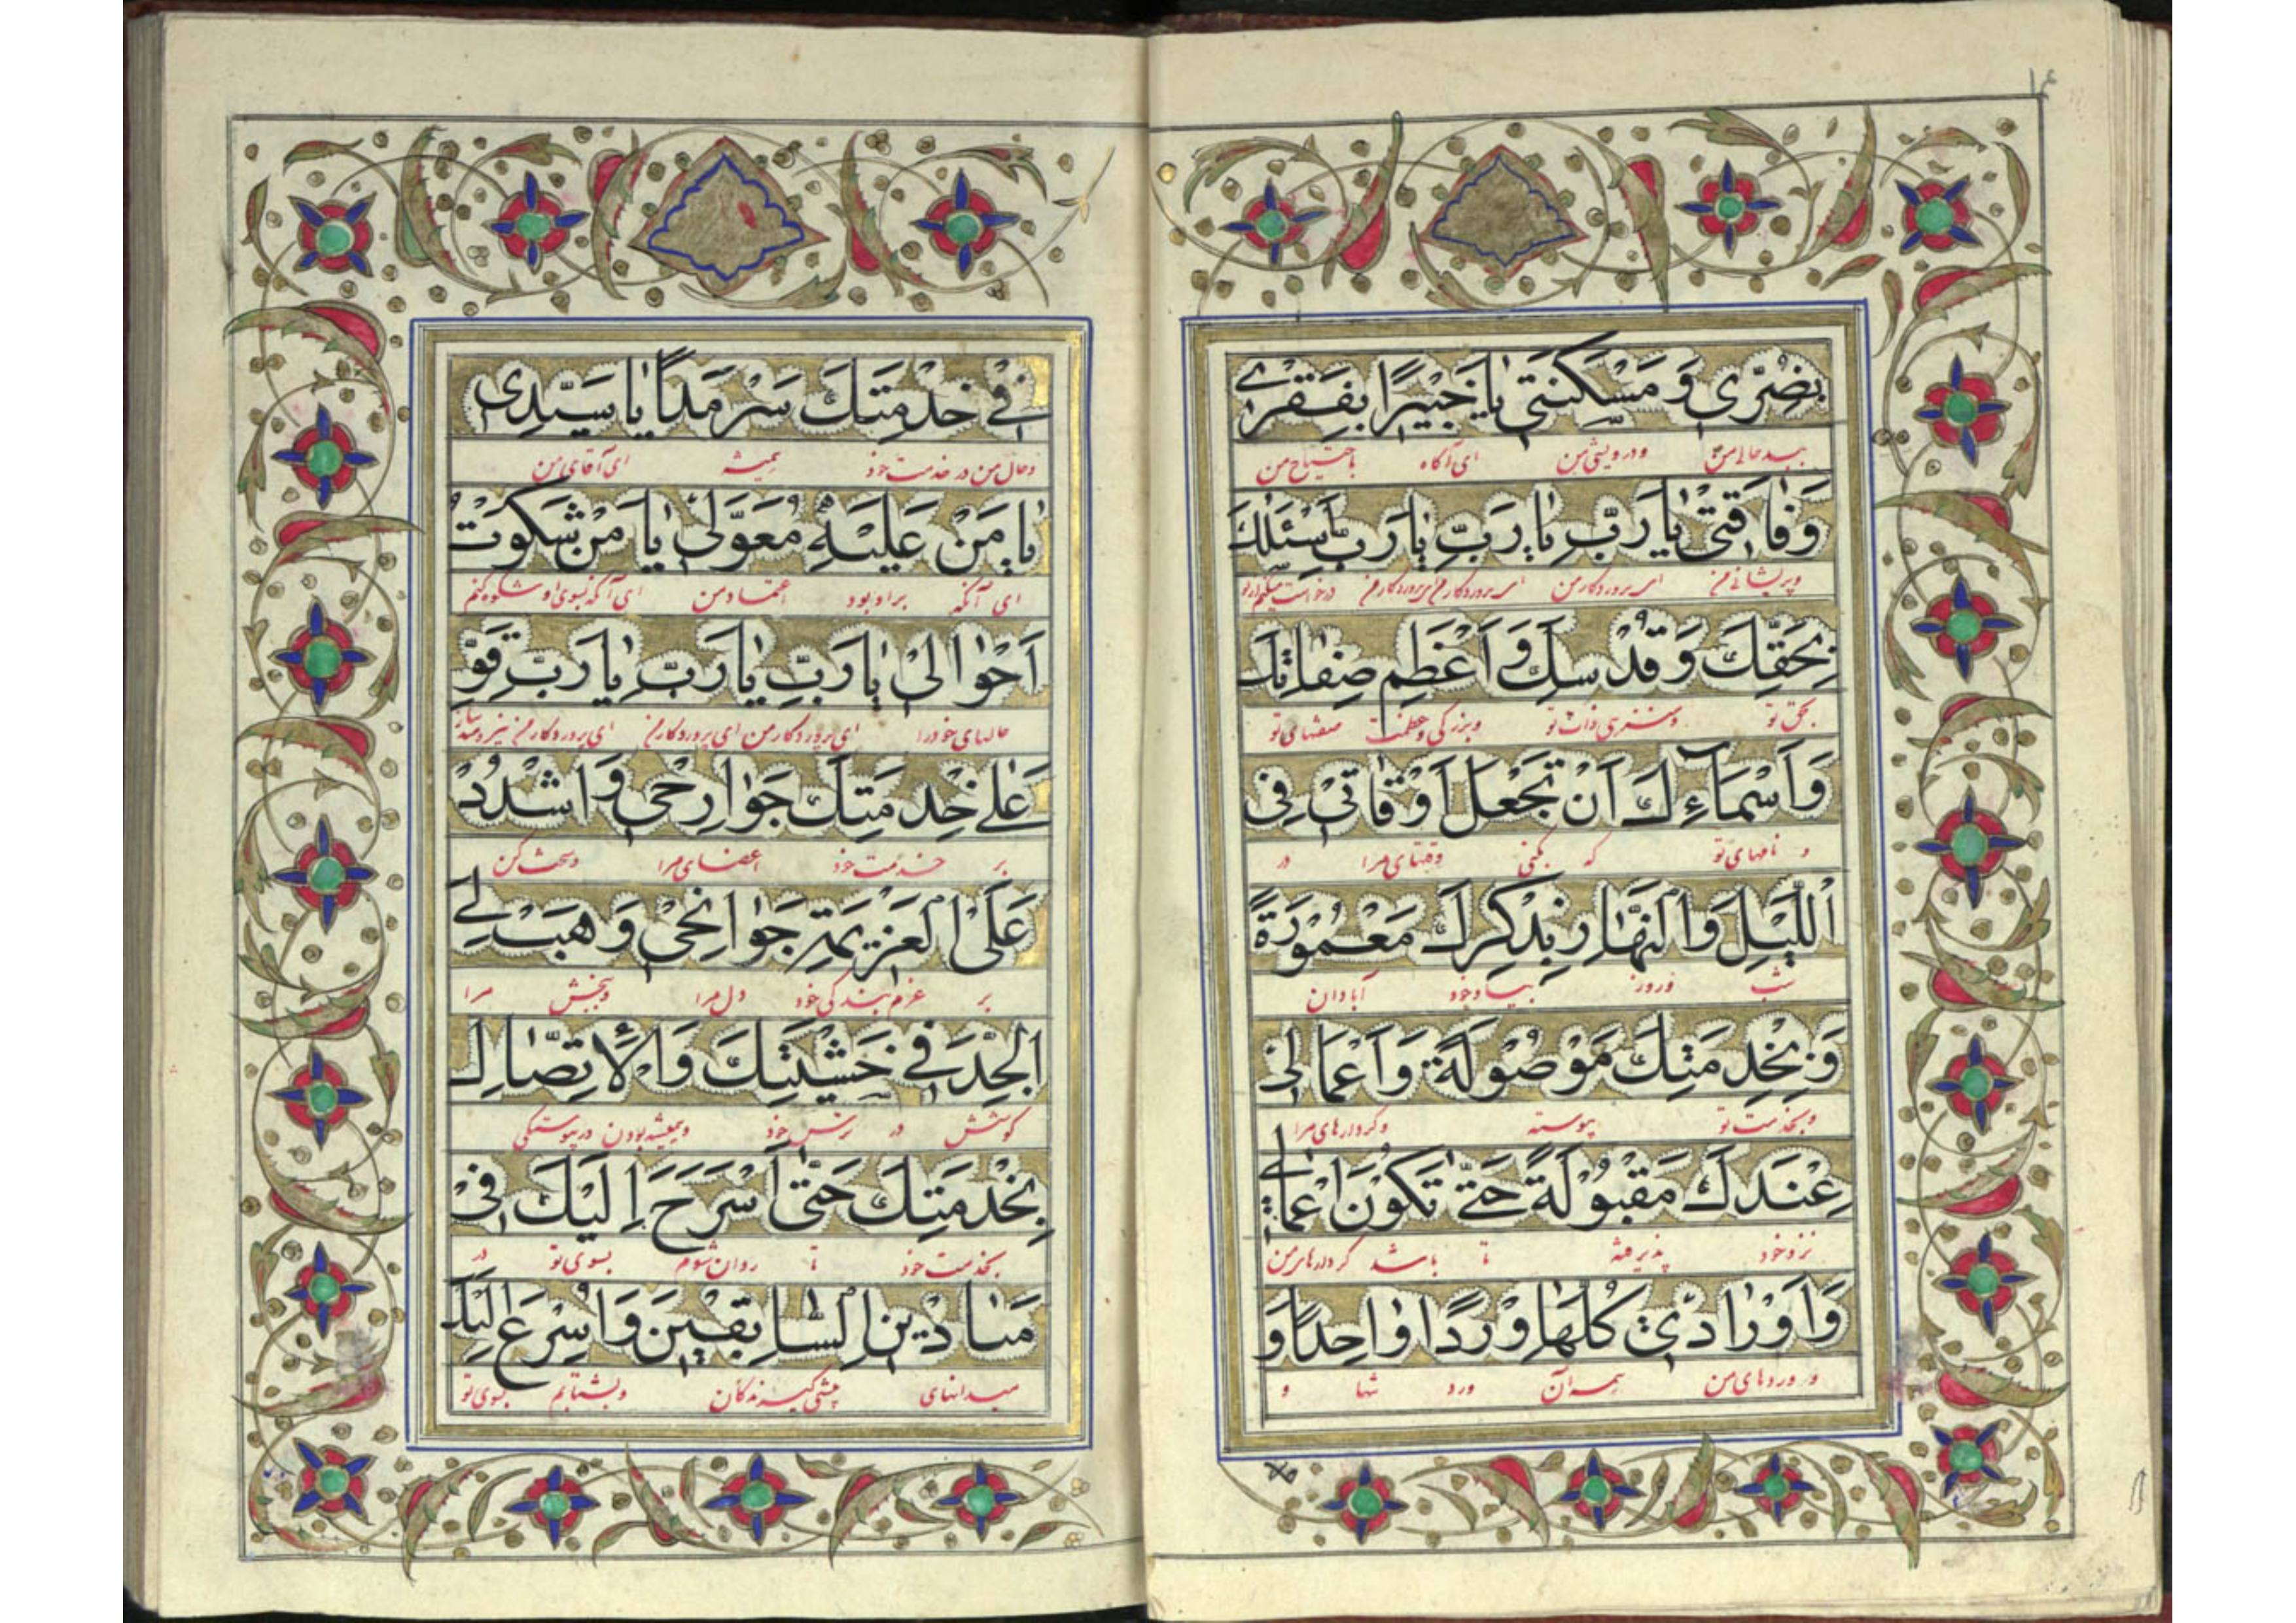 ۱۴
بِضُرّی وَ مَسْکَنَتی یٰا خَبیٖرًا بِفَقْرٖی
ببدحالی من و درویشی من ای آگاه باحتیاج من
وَفٰاقَتیٖ یٰا رَبِّ یٰا رَبِّ یٰا رَبِّ اَسْئَلُکَ
و پریشانی من ای پروردگار من ای پروردگار من ای پروردگار من درخواست میکنم از تو
بِحَقِّکَ وَ قُدْسِکَ وَ اَعْظَمِ صِفٰاتِکَ
بحق تو و منزهی ذات تو و بزرگی و عظمت صفتهای تو
وَ اَسْمٰآءِکَ اَنْ تَجْعَلَ اَوْقٰاتیٖ فِی
و نامهای تو که بکنی وقتهای مرا در
اللَّیْلِ وَ النَّهٰارِ بِذِکْرِکَ مَعْمُوْرَةً
شب و روز بیاد خود آبادان
وَ بِخِدْمَتِکَ مَوْصُوْلَةً وَ اَعْمٰالیٖ
و بخدمت تو پیوسته و کردارهای مرا
عِنْدَکَ مَقْبُوْلَةً حَتّیٰ تَکُوْنَ اَعْمٰالیٖ
نزد خود پذیرفته تا باشد کردارهای من
وَ اَوْرٰادیٖ کُلُّهٰا وِرْدًا وٰاحِدًا وَ
و وردهای من همه آن ورد تنها و
فیٖ خِدْمَتِکَ سَرْمَدًا یٰا سَیِّدِی
و حال من در خدمت خود همیشه ای آقای من
یٰا مَنْ عَلَیْهِ مُعَوَّلیٖ یٰا مَنْ شَکَوْتُ
ای آنکه بر او بود اعتماد من ای آنکه بسوی او شکوه کنم
اَحْوٰالیٖ یٰا رَبِّ یٰا رَبِّ یٰا رَبِّ قَوِّ
حالهای خود را ای پروردگار من ای پروردگار من ای پروردگار من نیرومند ساز
عَلیٰ خِدْمَتِکَ جَوٰارِحیٖ وَ اشْدُدْ
بر خدمت خود اعضای مرا و سخت کن
عَلَی الْعَزیٖمَةِ جَوٰانِحیٖ وَ هَبْ لِیَ
بر عزم بندگی خود دل مرا و ببخش مرا
الْجِدَّ فیٖ خَشْیَتِکَ وَ الْاِتِّصٰالِ
کوشش در ترس خود و همیشه بودن در پیوستگی
بِخِدْمَتِکَ حَتّیٰ اَسْرَحَ اِلَیْکَ فیٖ
بخدمت خود تا روان شوم بسوی تو در
مَیٰادیٖنِ السّٰابِقیٖنَ وَ اُسْرِعَ اِلَیْکَ
میدانهای پیشی گیرندگان و بشتابم بسوی تو